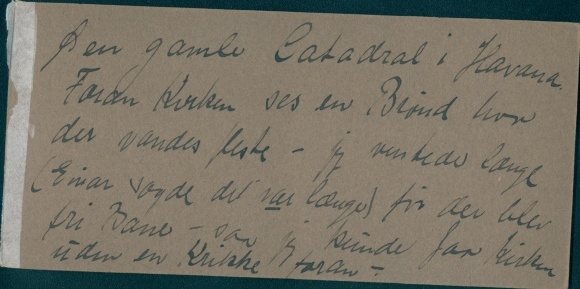 Den gamle Catadral i Havana.
Foran Kirken ses en Brönd hvor
der vandes Heste - jeg ventede længe
(Einar sagde det var længe) för der blev
fri Bane - saa jeg kunde faa Kirken
uden en Krikke foran -